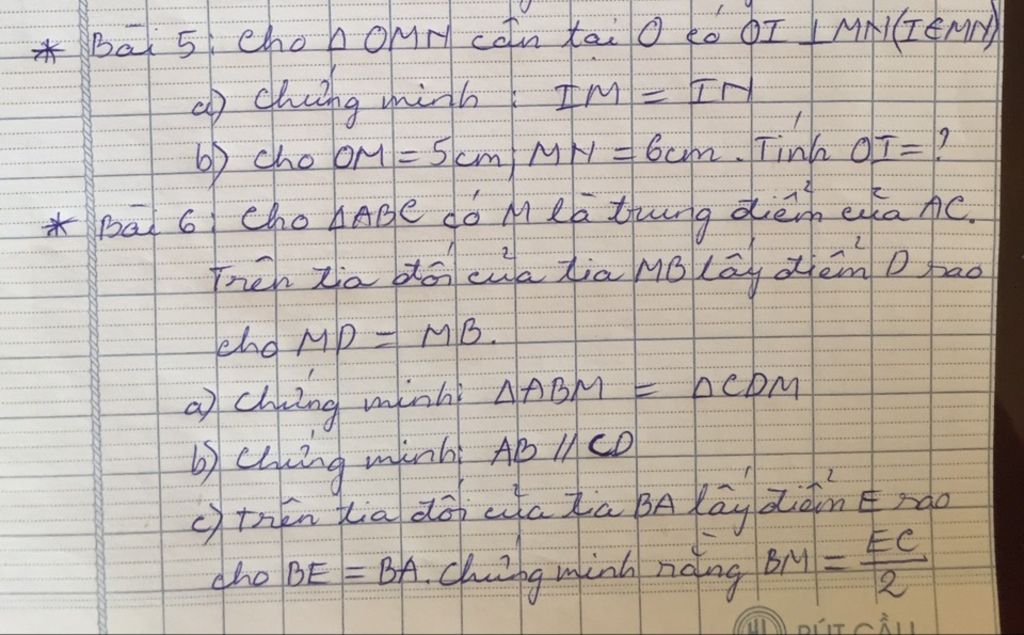 * Bài 5: Cho ΔOMN cân tại O có OI ⊥ MN (I ∈ MN)
a) Chứng minh: IM = IN
b) Cho OM = 5cm; MN = 6cm. Tính OI = ?
* Bài 6: Cho ΔABC có M là trung điểm của AC.
Trên tia đối của tia MB lấy điểm D sao
cho MD = MB.
a) Chứng minh: ΔABM = ΔCDM
b) Chứng minh: AB // CD
c) Trên tia đối của tia BA lấy điểm E sao
cho BE = BA. Chứng minh rằng BM = EC/2
BÚT CẦU